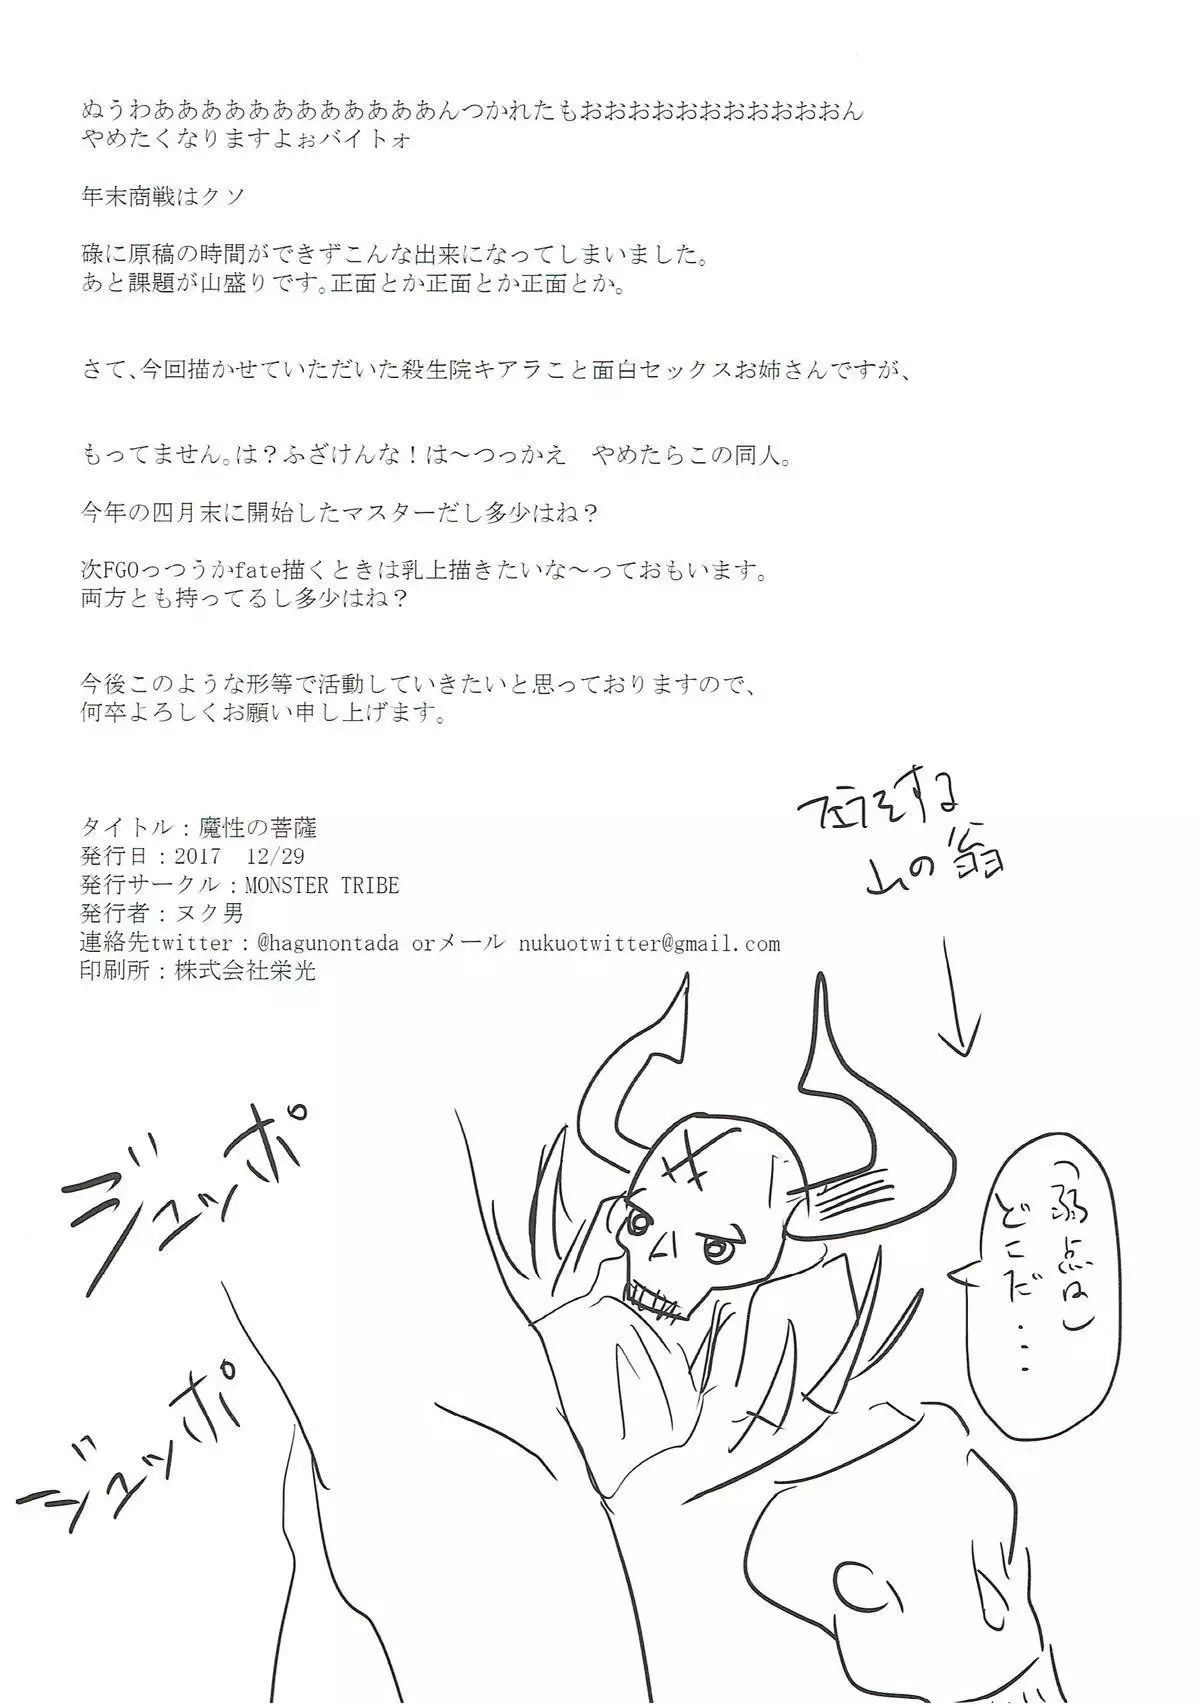 ぬうわああああああああああああんつかれたもおおおおおおおおおおおおん
やめたくなりますよぉバイトォ
年末商戦はクソ
碌に原稿の時間ができずこんな出来になってしまいました。
あと課題が山盛りです。正面とか正面とか正面とか。
さて、今回描かせていただいた殺生院キアラこと面白セックスお姉さんですが、
もってません。は？ふざけんな！は～つっかえ　やめたらこの同人。
今年の四月末に開始したマスターだし多少はね？
次FGOっつうかfate描くときは乳上描きたいな～っておもいます。
両方とも持ってるし多少はね？
今後このような形等で活動していきたいと思っておりますので、
何卒よろしくお願い申し上げます。
タイトル：魔性の菩薩
発行日：2017　12/29
発行サークル：MONSTER TRIBE
発行者：ヌク男
連絡先twitter：@hagunontada orメール nukuotwitter@gmail.com
印刷所：株式会社栄光
フェラをする
山の翁
（弱点は）
どこだ・・・
ジュッポ
ジュッポ